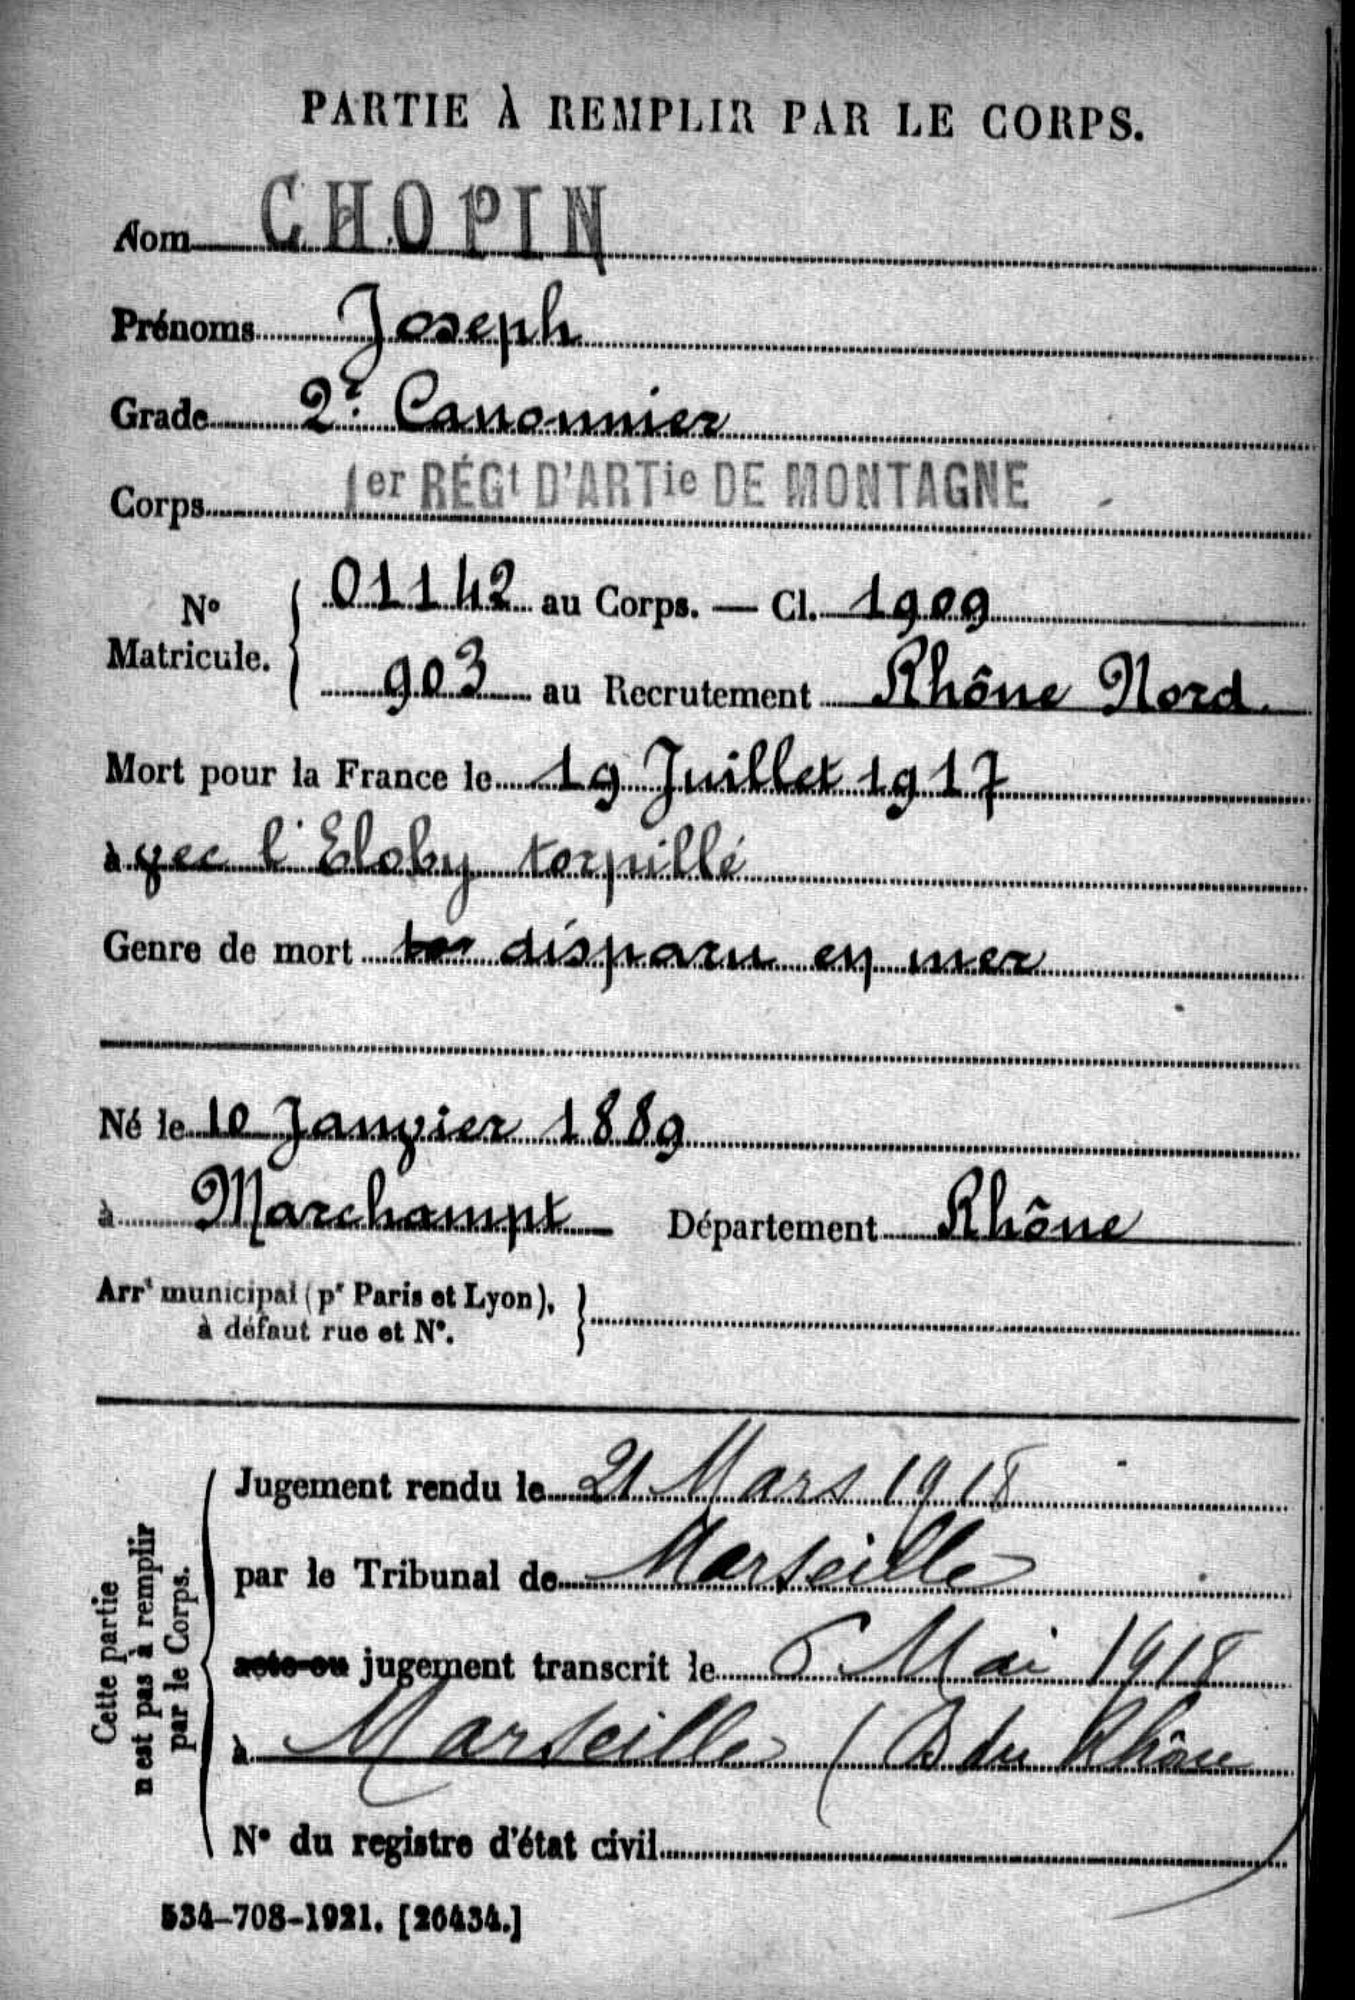 PARTIE À REMPLIR PAR LE CORPS.
Nom CHOPIN
Prénoms Joseph
Grade 2e Canonnier
Corps 1er RÉGt D'ARTie DE MONTAGNE
No Matricule. { 01142 au Corps. — Cl. 1909
903 au Recrutement Rhône Nord.
Mort pour la France le 19 Juillet 1917
avec l'Eloby torpillé
Genre de mort disparu en mer
Né le 10 Janvier 1889
à Marchampt Département Rhône
Arrt municipal (pr Paris et Lyon), }
à défaut rue et No.
Cette partie
n'est pas à remplir
par le Corps.
Jugement rendu le 21 Mars 1918
par le Tribunal de Marseille
acte ou jugement transcrit le 6 Mai 1918
à Marseille (B du Rhône)
No du registre d'état civil
534-708-1921. [26434.]